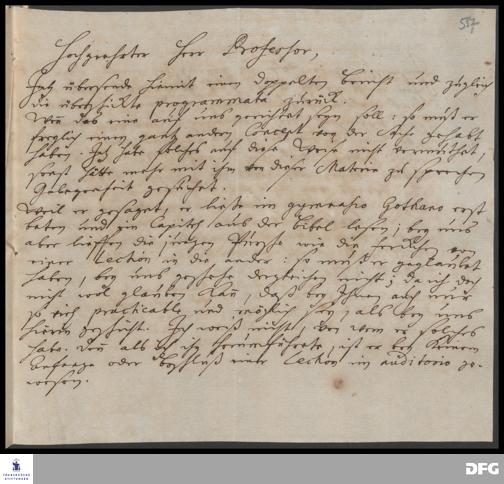 537
Hochgeehrter Herr Professor,
Ich übersende hiemit einen doppelten bericht und zugleich
die überschickte programmata zurück.
Wenn das eine auf uns gerichtet seyn soll; so muß er
freylich einen gantz andern Concept von der Sache gehabt
haben. Ich habe solches auf diese Weise nicht vermuthet,
sonst hätte mehr mit ihm von dieser Materie zu sprechen
Gelegenheit gesuchet.
Weil er gesaget, er ließe im gymnasio Gothano erst
beten und ein Capitel aus der bibel lesen; bey uns
aber lieffen die jungen Pursche wie die von
einer Lection in die andere: so muß er geglaubet
haben, bey uns geschehe dergleichen nicht; da ich doch
nicht wol glauben kan, daß bey Ihnen auch nur
so viel practicable und möglich sey, als bey uns
hierin geschicht. Ich weiß nicht, von wem er solches
habe. Denn als ich ihn herumführete, ist er bey keinem
Anfange oder beschluß einer Lection im auditorio ge-
wesen.
FRANCKESCHE
STIFTUNGEN
DFG